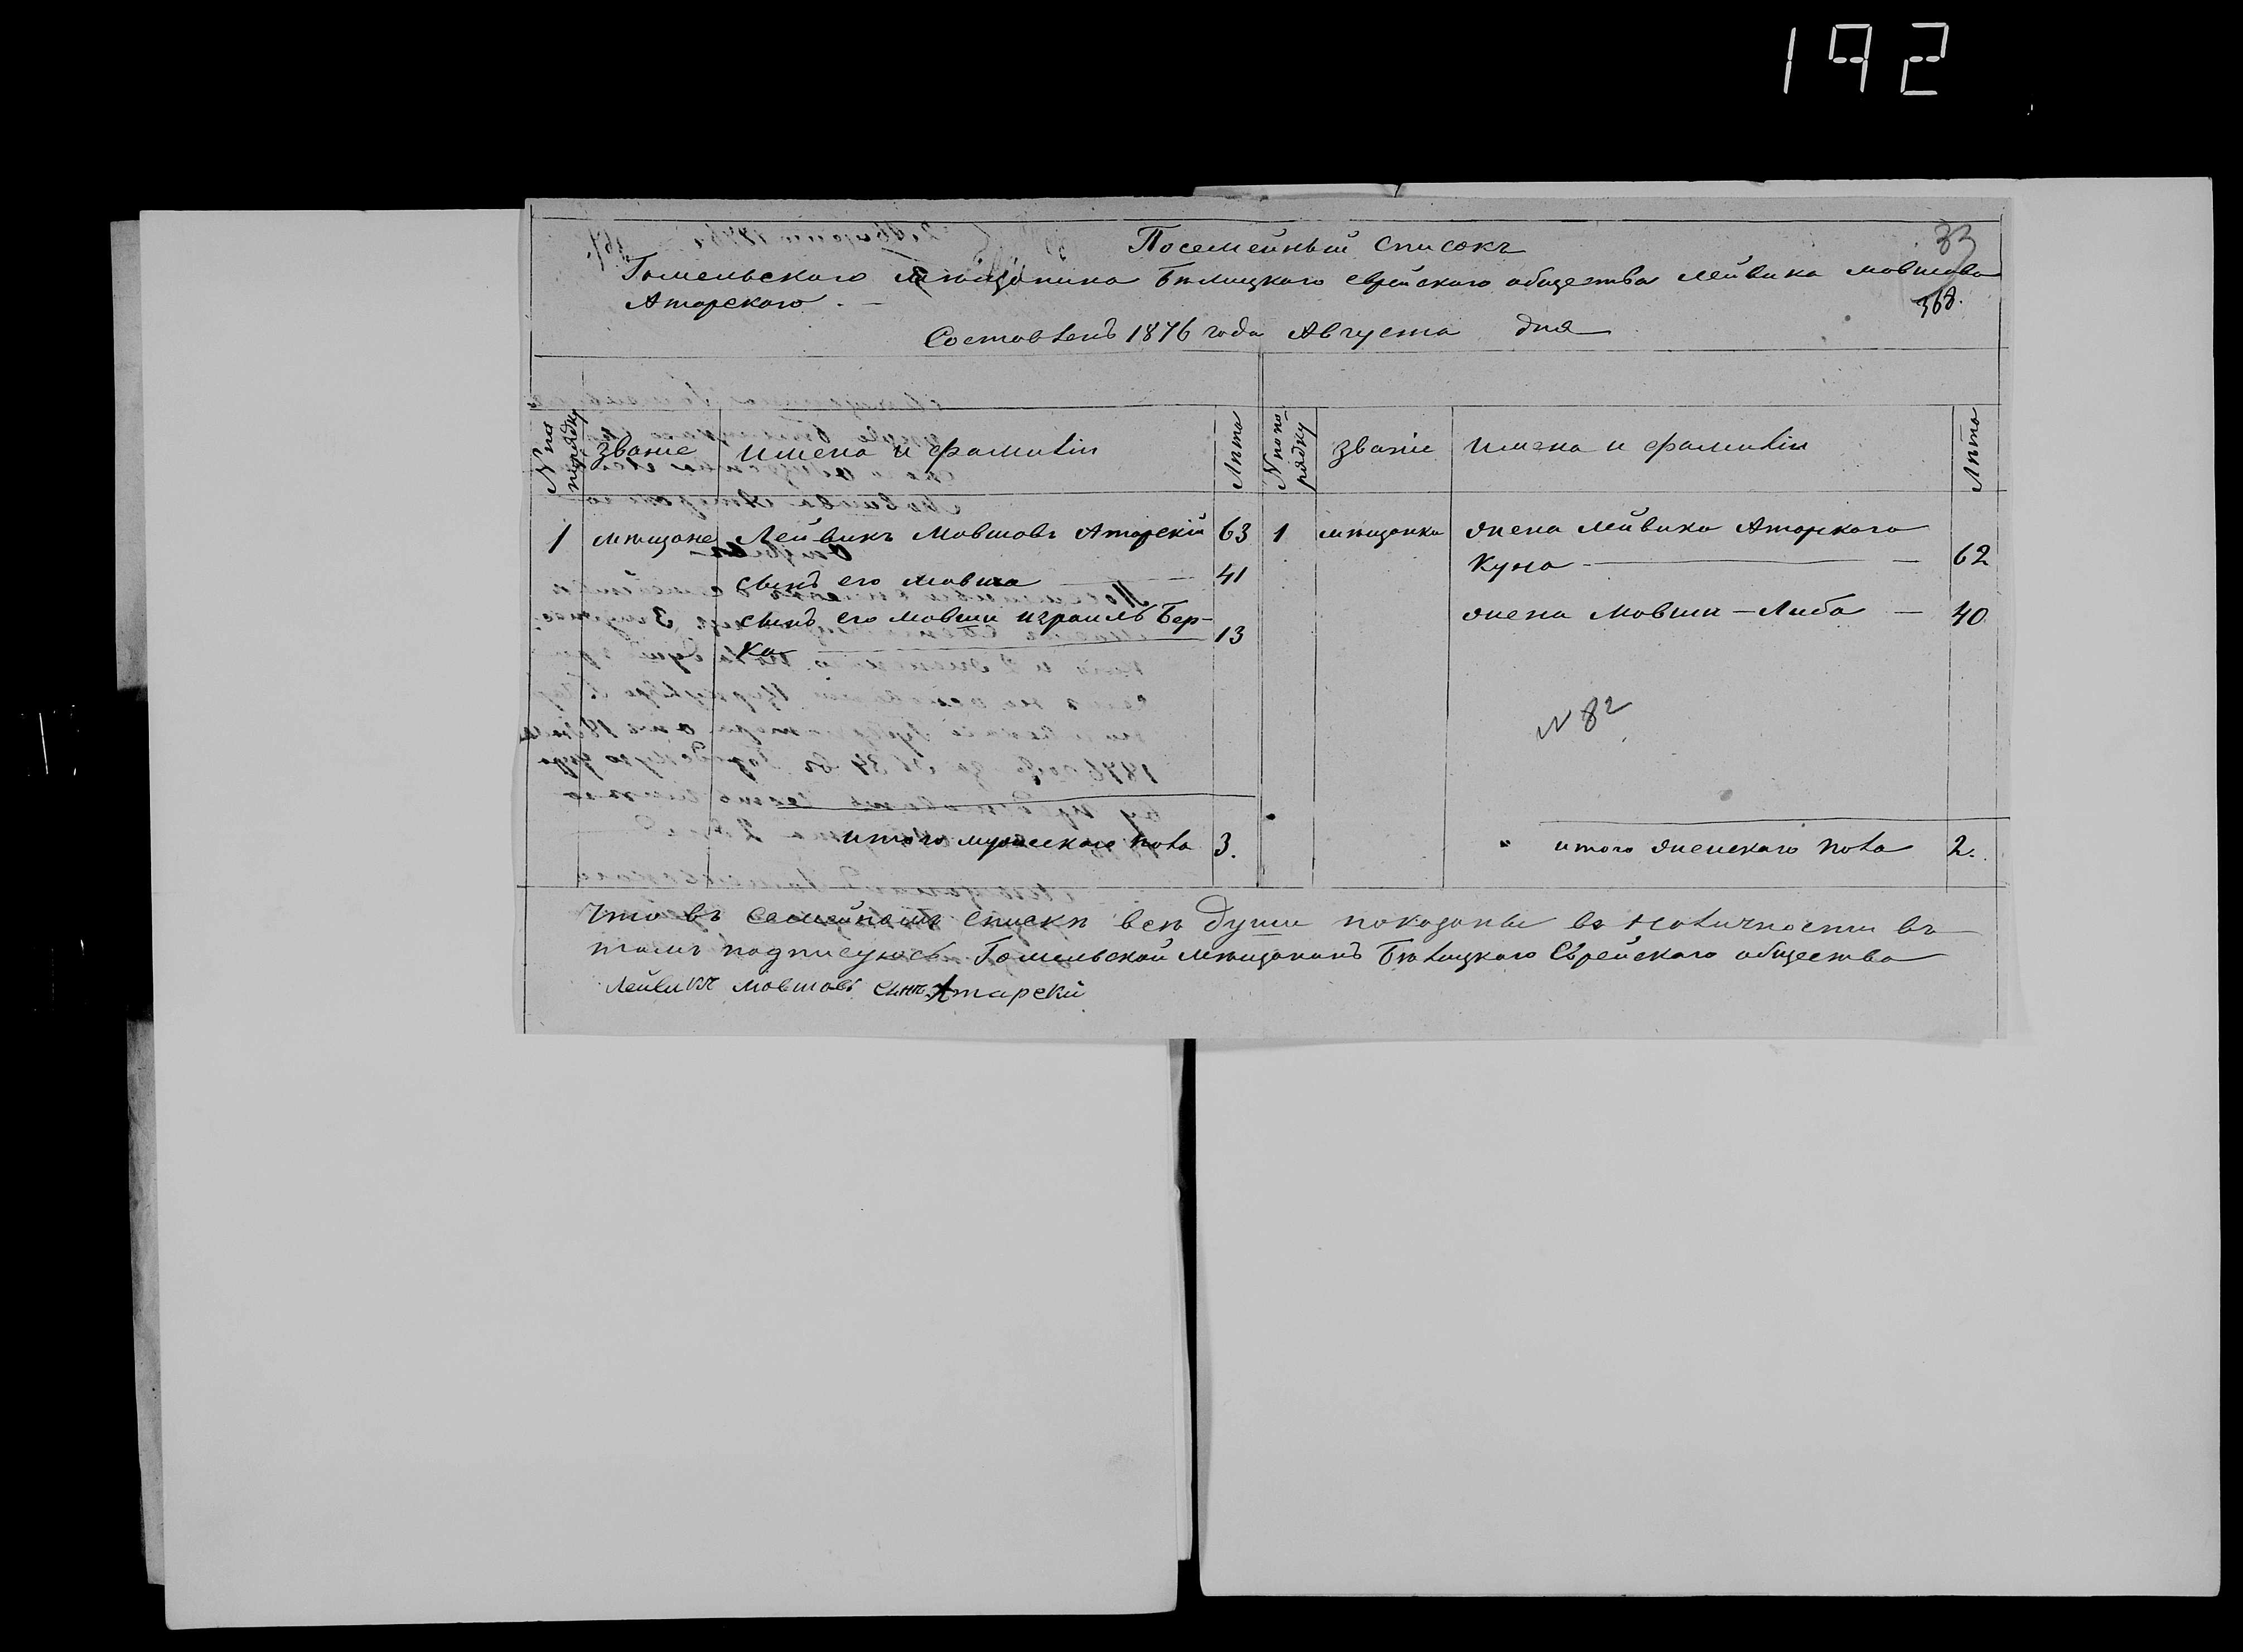 192
33
Посемейный списокъ
Гомельского мѣщанина Бѣлицкаго еврейского общества Лейвика Мовшова
Аторского. —
368.
Составленъ 1876 года Августа дня
№ по порядку звание имена и фамиліи Лѣта № по порядку званіе имена и фамиліи Лѣта
1 мѣщане Лейвикъ Мовшовъ Аторскій 63 1 мѣщанка жена Лейвика Аторскаго
Куна — 62
сынъ его Мовша — 41
сынъ его Мовши Израиль Бер- жена Мовши — Либа — 40
ка — 13
N 82
итого мужескаго пола 3. " итого женскаго пола 2.
Что въ семейномъ спискѣ всѣ души показаны въ наличности въ
томъ подписуюсь Гомельской мѣщанинъ Бѣлицкаго Еврейскаго общества
Лейвикъ Мовшовъ синъ Атарскій